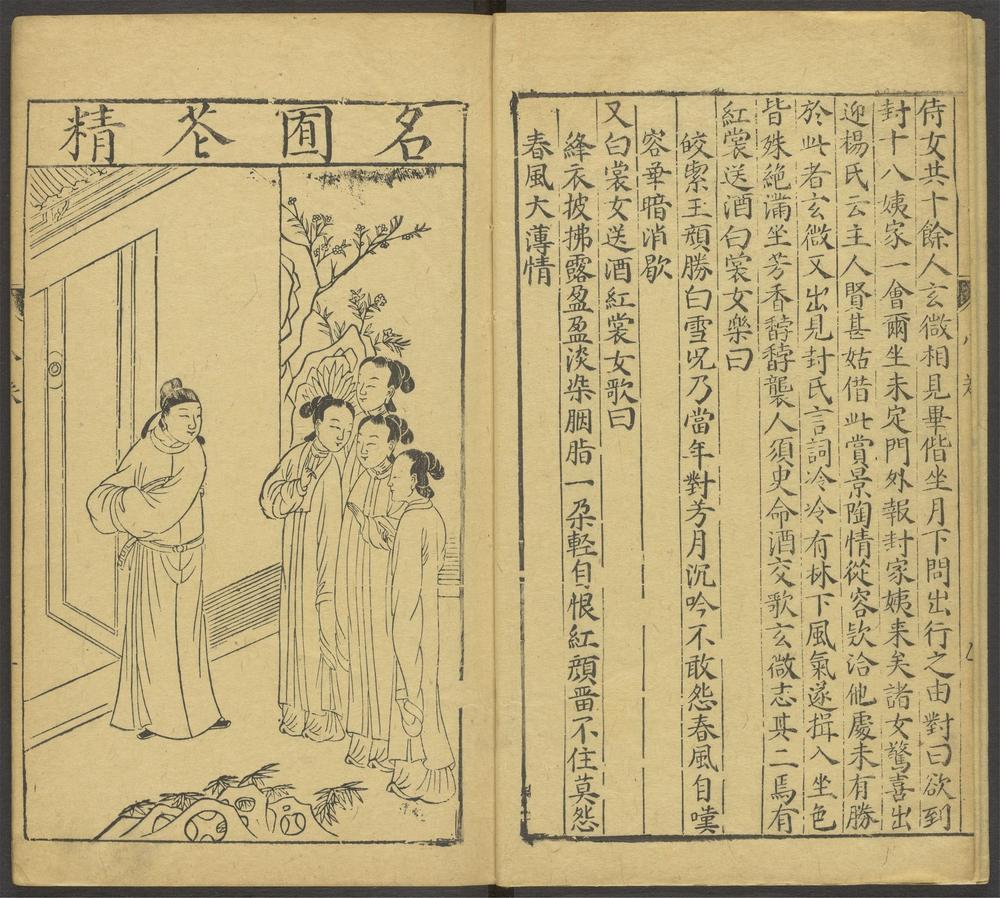 侍女共十餘人玄微相見畢偕坐月下問出行之由對曰欲到
封十八姨家一會爾坐未定門外報封家姨来矣諸女驚喜出
迎楊氏云主人賢甚姑借此賞景陶情從容欵洽他處未有勝
於此者玄微又出見封氏言詞冷冷有林下風氣遂揖入坐色
皆殊絶滿坐芳香馞馞襲人須臾命酒交歌玄微志其二焉有
紅裳送酒白裳女樂曰
皎絜玉顔勝白雪况乃當年對芳月沉吟不敢怨春風自嘆
容華暗消歇
又白裳女送酒紅裳女歌曰
絳衣披拂露盈盈淡染胭脂一朶輕自恨紅顔畱不住莫怨
春風大薄情
名圃花精